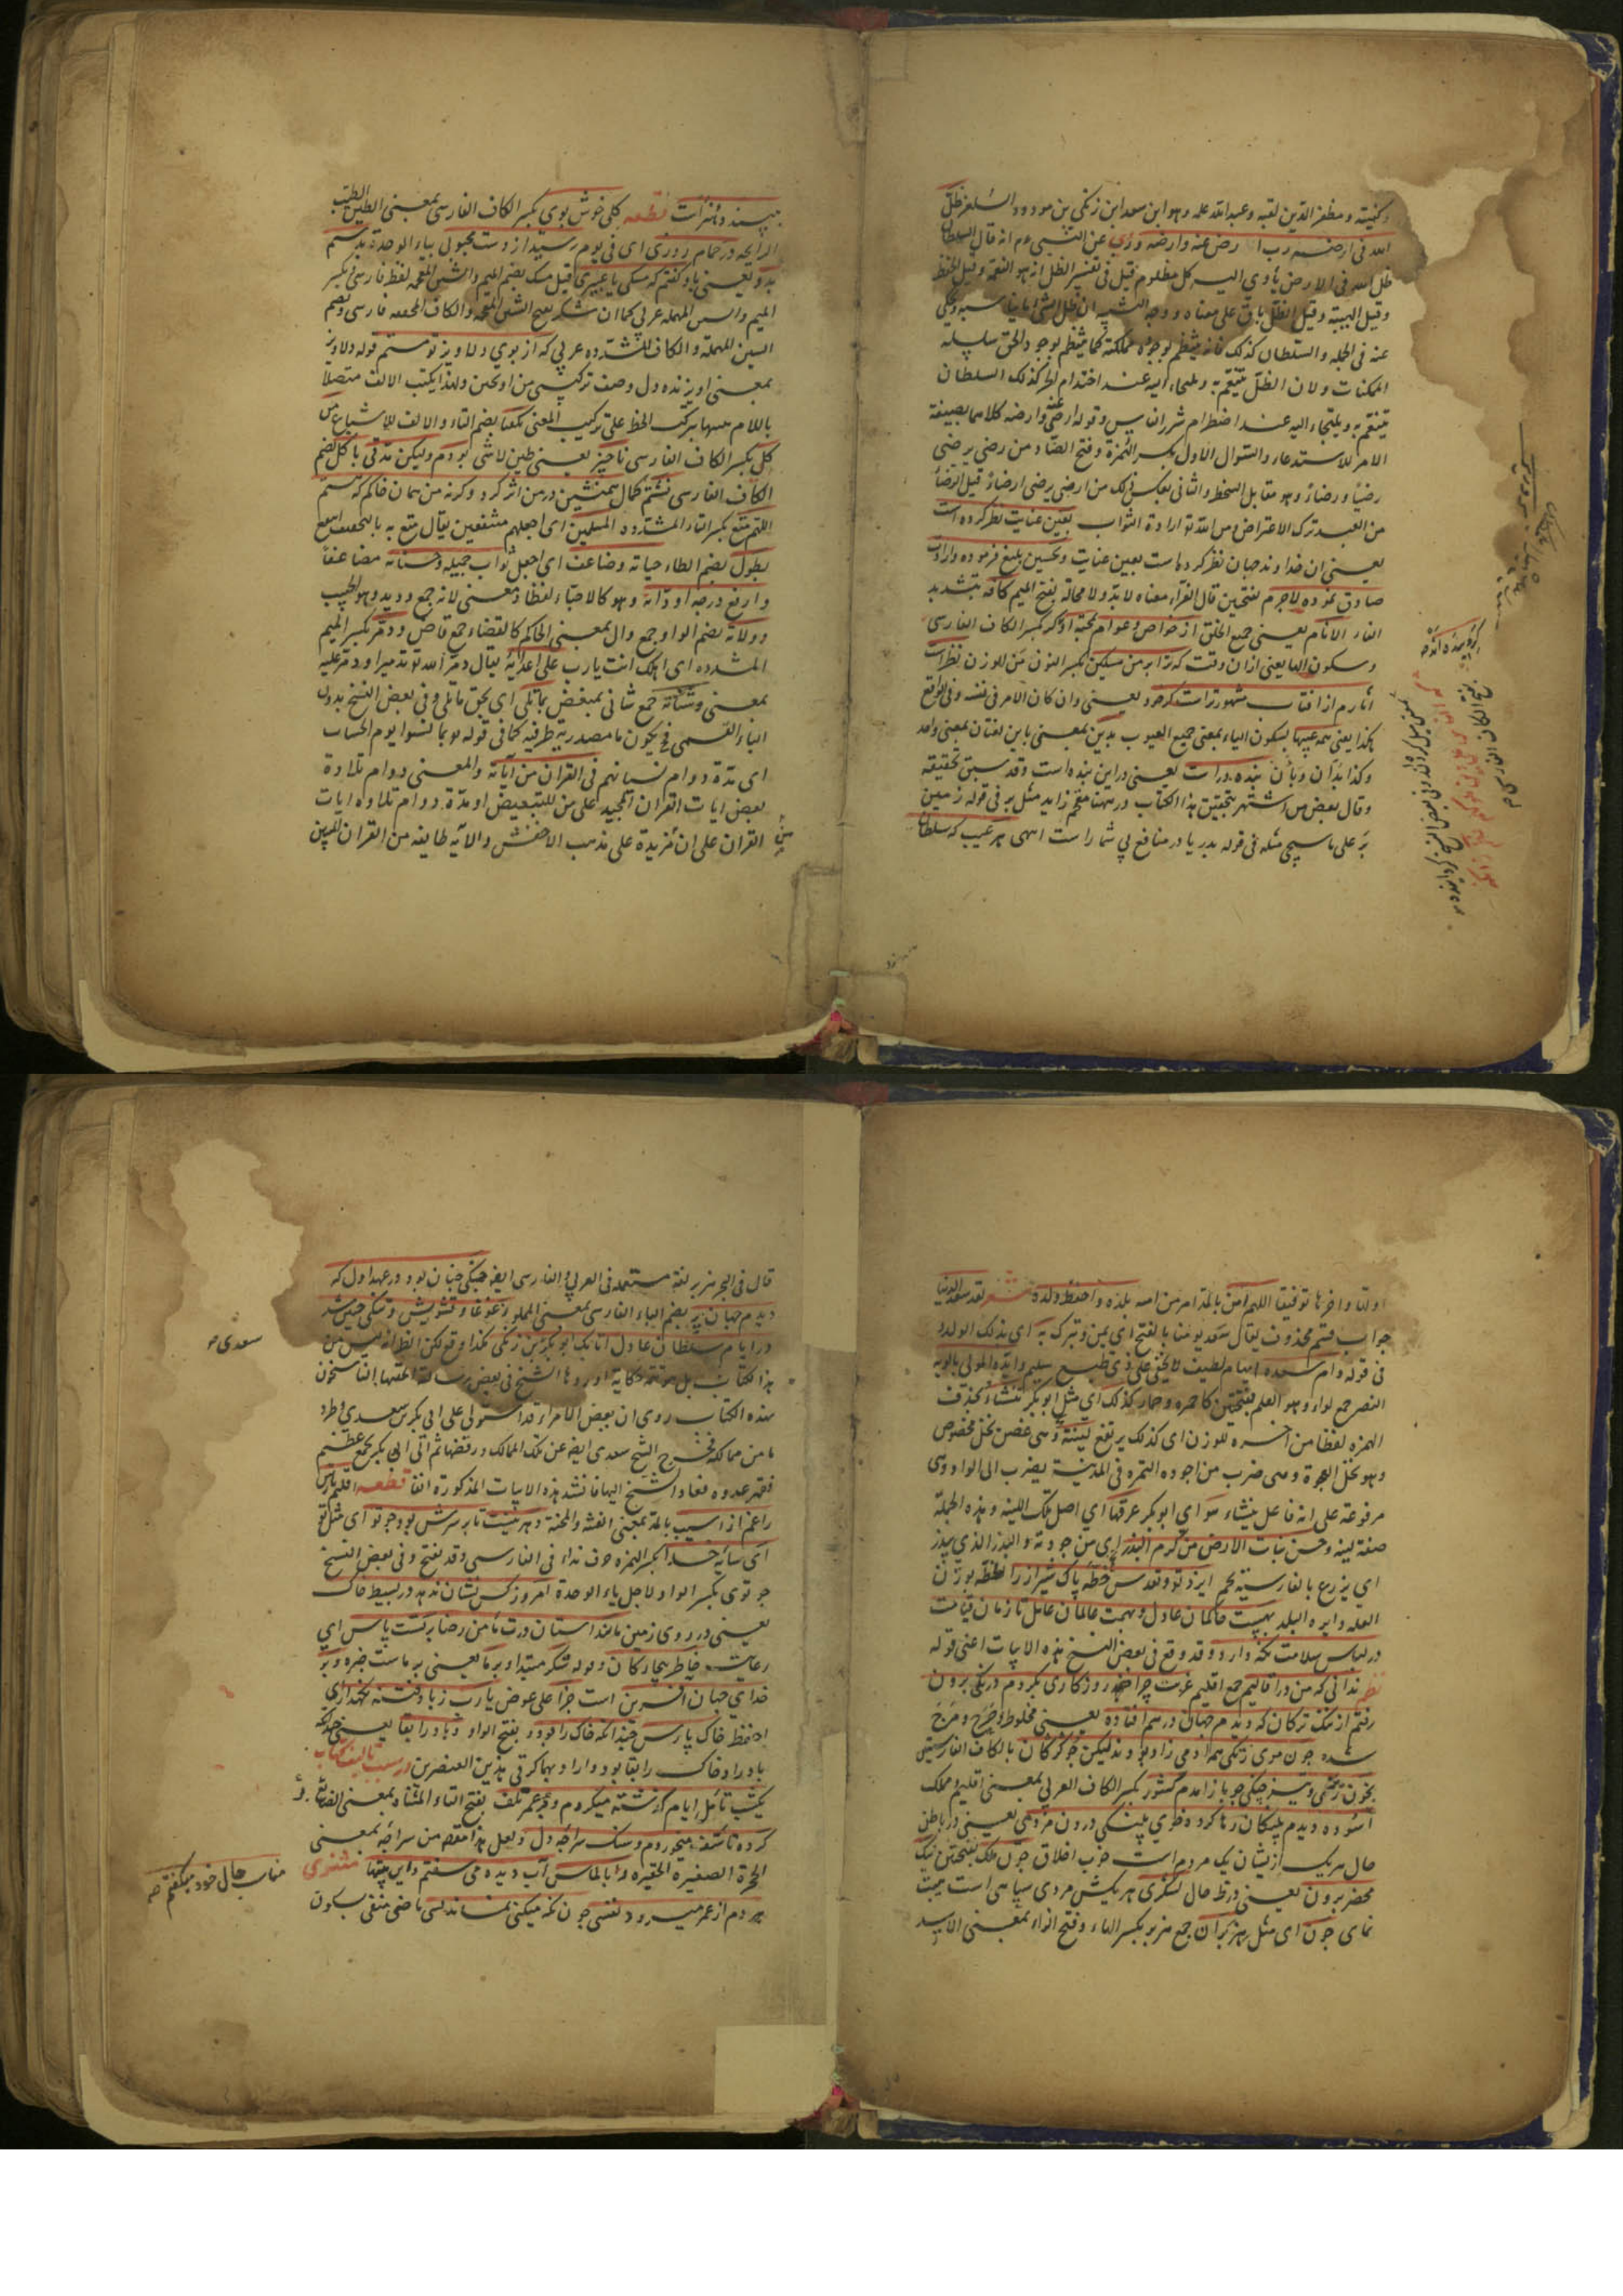 وكنيته ومظفر الدين لقبه وعبد الله علمه وهو ابن سعد ابن زنكي بن مودود السلغر ظل
الله فى ارضه رب ارض عنه وارضه وروي عن النبي عم انه قال السلطان
ظل الله فى الارض يأوي اليه كل مظلوم قيل فى تفسير الظل ازهو النعمة وقيل الحفظ
وقيل الهيبة وقيل الظل باق على معناه ووجه التشبيه ان ظل الشئ ما يناسبه ويحكي
عنه فى الجمله والسلطان كذلك فانه ينتظم بوجوده مملكته كما ينتظم بوجود الحق سلسله
الممكنات ولان الظل يتنعم به ويلتجاء اليه عند احتدام الحر كذلك السلطان
يتنعم به ويلتجاء اليه عند اضطرام شرر الباس وقوله ارض عنه وارضه كلاهما بصيغة
الامر للاستدعاء والسؤال الاول بكسر الهمزة وفتح الضاد من رضى يرضى
رضيا ورضاء وهو مقابل السخط والثانى بعكس ذلك من ارضى يرضى ارضاء قيل الرضاء
من العبد ترك الاعتراض ومن الله تو ارادة الثواب بعين عنايت نظر كرده است
يعنى ان خداوند جهان نظر كرده است بعين عنايت وتحسين بليغ فرموده وارادت
صادق نموده لاجرم بفتحين قال الفراء معناه لا بد ولا محالة بفتح الميم كافه بتشديد
الفاء الانام يعنى جميع الخلق از خواص وعوام محبه او كر بكسر الكاف الفارسى
وسكون الها يعنى ازان وقت كه ترا بر من مسكين بكسر النون من للوزن نظرات
اثارم از افتاب مشهورترات كرخود يعنى وان كان الامر فى نفسه وفى الواقع
هكذا يعنى همه عيبها بسكون الياء بمعنى جميع العيوب بدين بمعنى باين لغتان بمعنى واحد
وكذا بدان وبآن بنده دراست يعنى در اين بنده است وقد سبق تحقيقه
وقال بعض من اشتهر بتحقيق هذا الكتاب در ههنا مقحم زايد مثل بر فى قوله زمين
بر على ما سيجئ مثله فى قوله بدريا در منافع بي شما راست انتهى هر عيب كه سلطان
بپسندد هنرات قطعه كلى خوش بوي بكسر الكاف الفارسى بمعنى الطين الطيب
الرايحه در حمام روزى اى فى يوم رسيد از دست محبوبى بياء الوحدة بدستم
بدو يعنى باو كفتم كه مشكى يا عبيرى قيل مسك بضم الميم والشين المعجمه لفظ فارسى وبكسر
الميم والسين المهمله عربى كما ان شكر بفتح الشين المعجمه والكاف المخففه فارسى وبضم
السين المهملة والكاف المشدده عربى كه از بوي دلاويز تو مستم قوله دلاويز
بمعنى اويزنده دل وصف تركيبى من اويختن ولهذا يكتب الالف متصلا
باللام ههنا بتركب الخط على تركيب المعنى بكفتا بضم التاء والالف للاشباع من
كل بكسر الكاف الفارسى ناچيز يعنى طين لا شئ بودم وليكن مدتى با كل بضم
الكاف الفارسى نشستم كمال همنشين در من اثر كرد وكرنه من همان خاكم كه هستم
اللهم متع بكسر التاء المشدده المسلمين اى اجعلهم منتفعين يقال متع به بالتخفيف انتفع
بطول بضم الطاء حياته وضاعف اى اجعل ثواب جميله وحسناته مضاعفا
وارفع درجه اودائه وهو كالاحباء لفظا ومعنى لانه جمع ووديد وهو الحبيب
وولاته بضم الواو جمع وال بمعنى الحاكم كالقضاء جمع قاض ودمر بكسر الميم
المشدده اى اهلك انت يا رب على اعدائه يقال دمر الله تو تدميرا ودمر عليه
بمعنى وشنأته جمع شانى بمبغض بما تلى اى بحق ما تلى وفى بعض النسخ بدون
الباء القسمى فح يكون ما مصدرية ظرفيه كما فى قوله تو بما نسوا يوم الحساب
اى مدة دوام نسيانهم فى القران من آياته والمعنى دوام تلاوة
بعض ايات القران المجيد على من للتبعيض او مدة دوام تلاوه ايات
القران على ان مزيدة على مذهب الاخفش والآيه طايفه من القران
اولها واخرها توقيفا اللهم آمن بالمد امر من امنه بلده واحفظ ولده شعر لقد سعد الدنيا
جواب قسم محذوف يقال سعد يومنا بالفتح اى يمن وتبرك به اى بذلك الولد
فى قوله دام سعده ايهام لطيف لا يخفى على ذى طبع سليم وايده المولى بالوية
النصر جمع لواء وهو العلم بفتحتين كاحمره وحمار كذلك اى مثل ابو بكر تنشاء بحذف
الهمزه لفظا من اخره للوزن اى كذلك يرتفع لينة وهى غصن نخل مخصوص
وهو نخل العجوة وهى ضرب من اجود التمره فى المدينة يضرب الى الواد وهى
مرفوعة على انه فاعل ينشاء هو اي ابو بكر عرقها اي اصل تلك اللينه وهذه الجملة
صفة لينه وحسن نبات الارض من كرم البذر اى من جودته والبذر الذي يبذر
اي يزرع بالفارسيه تخم ايزد تو وتقدس خطه پاك شيراز را الخطه بوزن
العله دايره البلد بهيبت حاكمان عادل وبهمت عالمان عامل تا زمان قيامت
در لباس سلامت نكه دارد وقد وقع فى بعض النسخ هذه الابيات اعنى قوله
نظم ندانى كه من در اقاليم جمع اقليم غربت چرا خود روزكارى بكردم درنكى برون
رفتم از تنك تركان كه ديدم جهان درهم افتاده يعنى مخلوط وهرج ومرج
شده چون موى زنكى همه ادمى زاد بودند ليكن چو كركان بالكاف الفارسى
بخون ختنى وتيز چنكى چو باز امدم كشور بكسر الكاف العربى بمعنى اقليم وملك
آسوده ديدم پلنكان رها كرده خوي پلنكى درون مردمى يعنى در باطن
حال هر يك ازيشان يك مردم است خوب اخلاق چون ملك بفتحتين نيك
محضر برون يعنى در ظاهر حال لشكرى هر يكش مردى سپاهى است هيبت
نماى چون اى مثل هزبران جمع هزبر بكسر الهاء وفتح الزاء بمعنى الاسد
قال فى البحر هزبر لغة مستعمله فى العربى والفارسى ايضا جنكى چنان بود در عهد اول كه
ديدم جهان پر بضم الباء الفارسى بمعنى المملو زغوغا وتشويش وتنكى چنين شد
در ايام سلطان عادل اتابك ابو بكر بن زنكى هكذا وقع لكن الظ انه ليس من
هذا الكتاب بل هو تتمة حكاية اوردها الشيخ فى بعض رسالة الحقها الناسخون
بهذه الكتاب روى ان بعض الامراء قد استولى على ابى بكر بن سعد بن وطرد
ما من مملكه فخرج الشيخ سعدى ايضا عن تلك الممالك ورفضها ثم اتى ابى بكر بجمع عظيم
فقهر عدوه فعاد الشيخ اليها فانشد هذه الابيات المذكورة انفا قطعه اقليم پارس
را غم از آسيب بالمد بمعنى الفتنه والمحنة دهر نيست تا بر سرش بود چو تو اى مثل تو
اى سايه خدا بكسر الهمزه حرف نداء فى الفارسى وقد يفتح وفى بعض النسخ
چو توى بكسر الواو لاجل ياء الوحدة امروز كس نشان ندهد در بسيط خاك
يعنى در روى زمين مانند آستان درت مامن رضا برتست پاس اى
رعايت خاطر بيچاركان وقوله شكر مبتدا وبر ما يعنى بر ماست خبره وبر
خداي جهان آفرين است جزا على عوض يا رب زباد فتنه نكهدارى
احفظ خاك پارس چندانكه خاك را بود بفتح الواو وباد را بقا يعنى چندانكه
باد را وخاك را بقا بود وارا وبها كرتى هذين العنصرين در سبب تاليف كتاب
يكشب تامل ايام كذشته ميكردم وبر عمر تلف بفتح التاء المثناة بمعنى الضائع
كرده تاسف ميخوردم وسنك سراچه دل ولعل هذا مقص من سراچه بمعنى
الحجرة الصغيرة الحقيره را بالماس آب ديده مى سفتم واين بيتها مثنوى
هر دم از عمر ميرود نفسى چون نكه ميكنى نماند بسى ماضى منفى بسكون
سعدى
مناسب حال خود ميكفتم